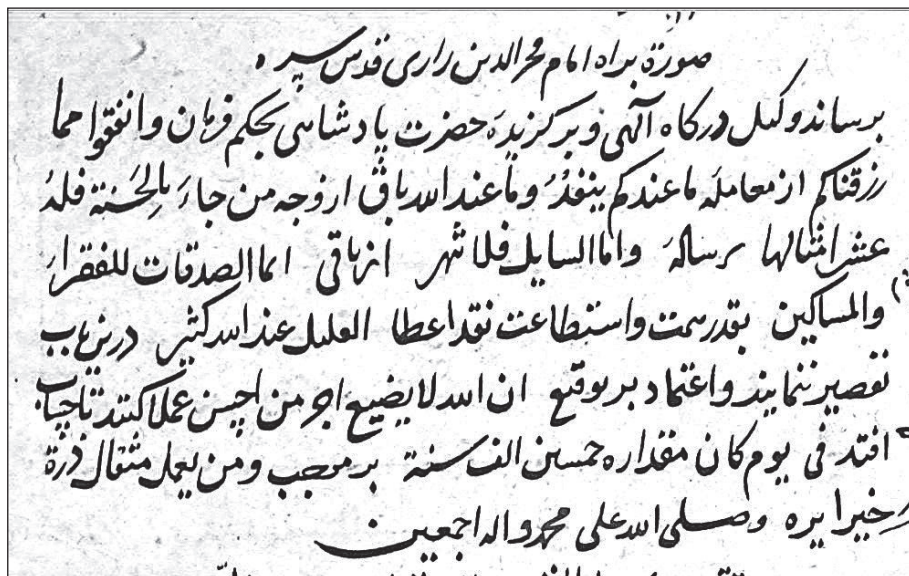 صورة براه امام فخر الدین رازی قدس سره
برساند وکیل درکاه آلهی و برکزیده حضرت پادشاهی بحکم فرمان وانفقوا مما
رزقناکم از معامله ماعندکم ینفد وماعند الله باق از وجه من جاء بالحسنة فله
عشر امثالها برساله واما السایل فلا تنهر از باقی انما الصدقات للفقراء
والمساکین بقدر سمت واستطاعت نقد اعطا القلیل عند الله کثیر درین باب
تقصیر ننمایند واعتماد بر توقیع ان الله لا یضیع اجر من احسن عملا کنند تا بحساب
افتد فی یوم کان مقداره خمسین الف سنة بر موجب ومن یعمل مثقال ذرة
خیرا یره وصلی الله علی محمد واله اجمعین